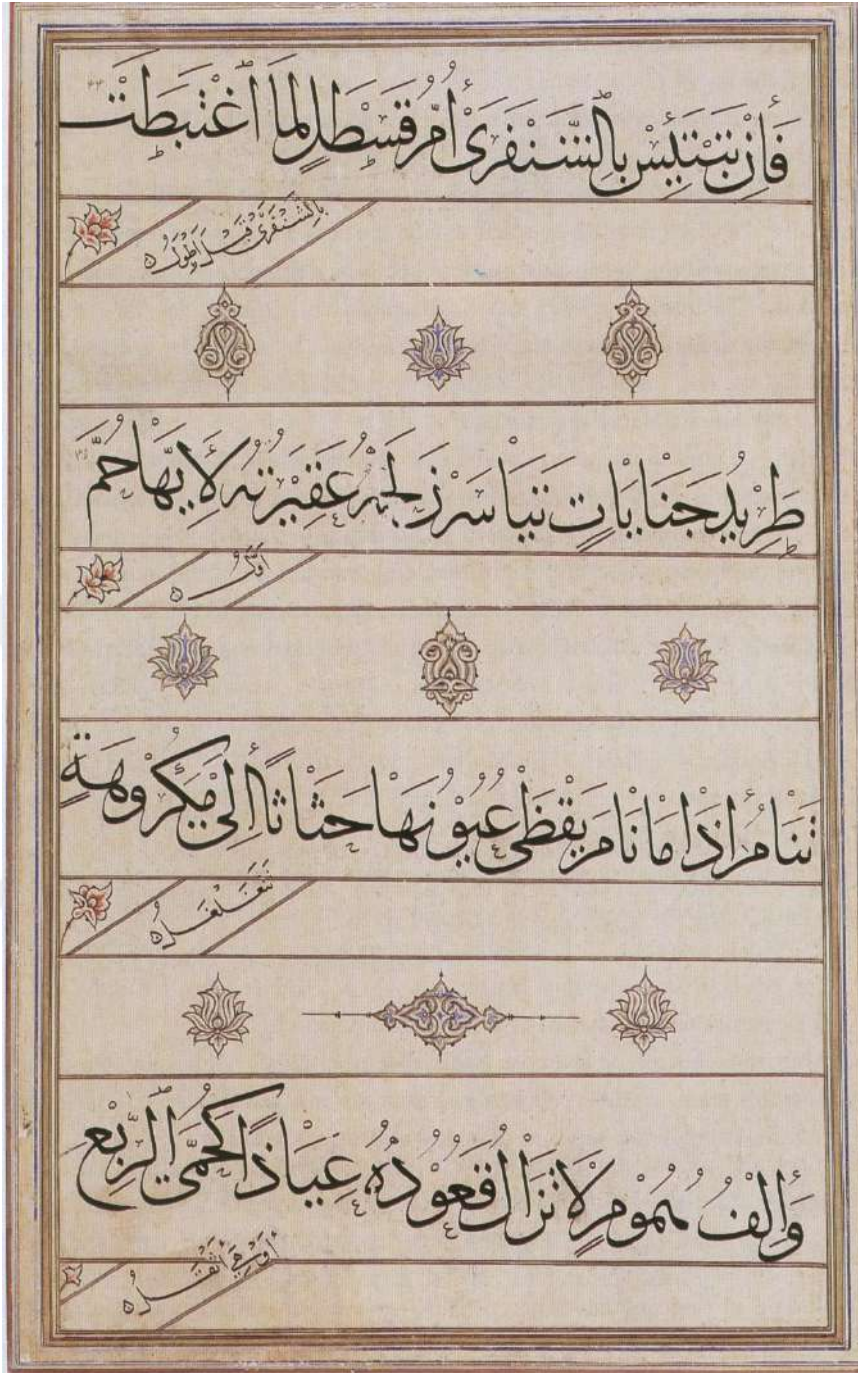 فَإِنْ تَبْتَئِسْ بِالشَّنْفَرَىٰ أُمُّ قَسْطَلٍ لَمَا اغْتَبَطَتْ
بِالشَّنْفَرَىٰ قَبْلُ أَطْوَلُ
طَرِيدُ جَنَايَاتٍ تَيَاسَرْنَ لَحْمَهُ عَقِيرَتُهُ لِأَيِّهَا حُمَّ
أَوَّلُ
تَنَامُ إِذَا مَا نَامَ يَقْظَىٰ عُيُونُهَا حَثَاثًا إِلَىٰ مَكْرُوهَةٍ
تَتَغَلْغَلُ
وَإِلْفُ هُمُومٍ لَا تَزَالُ تَعُودُهُ عِيَادًا كَحُمَّى الرِّبْعِ
أَوْ هِيَ أَثْقَلُ